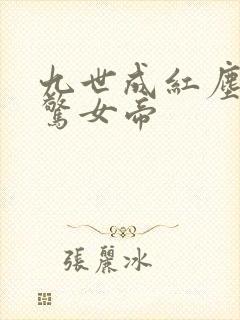 九世成紅塵
驚女帝
張麗冰